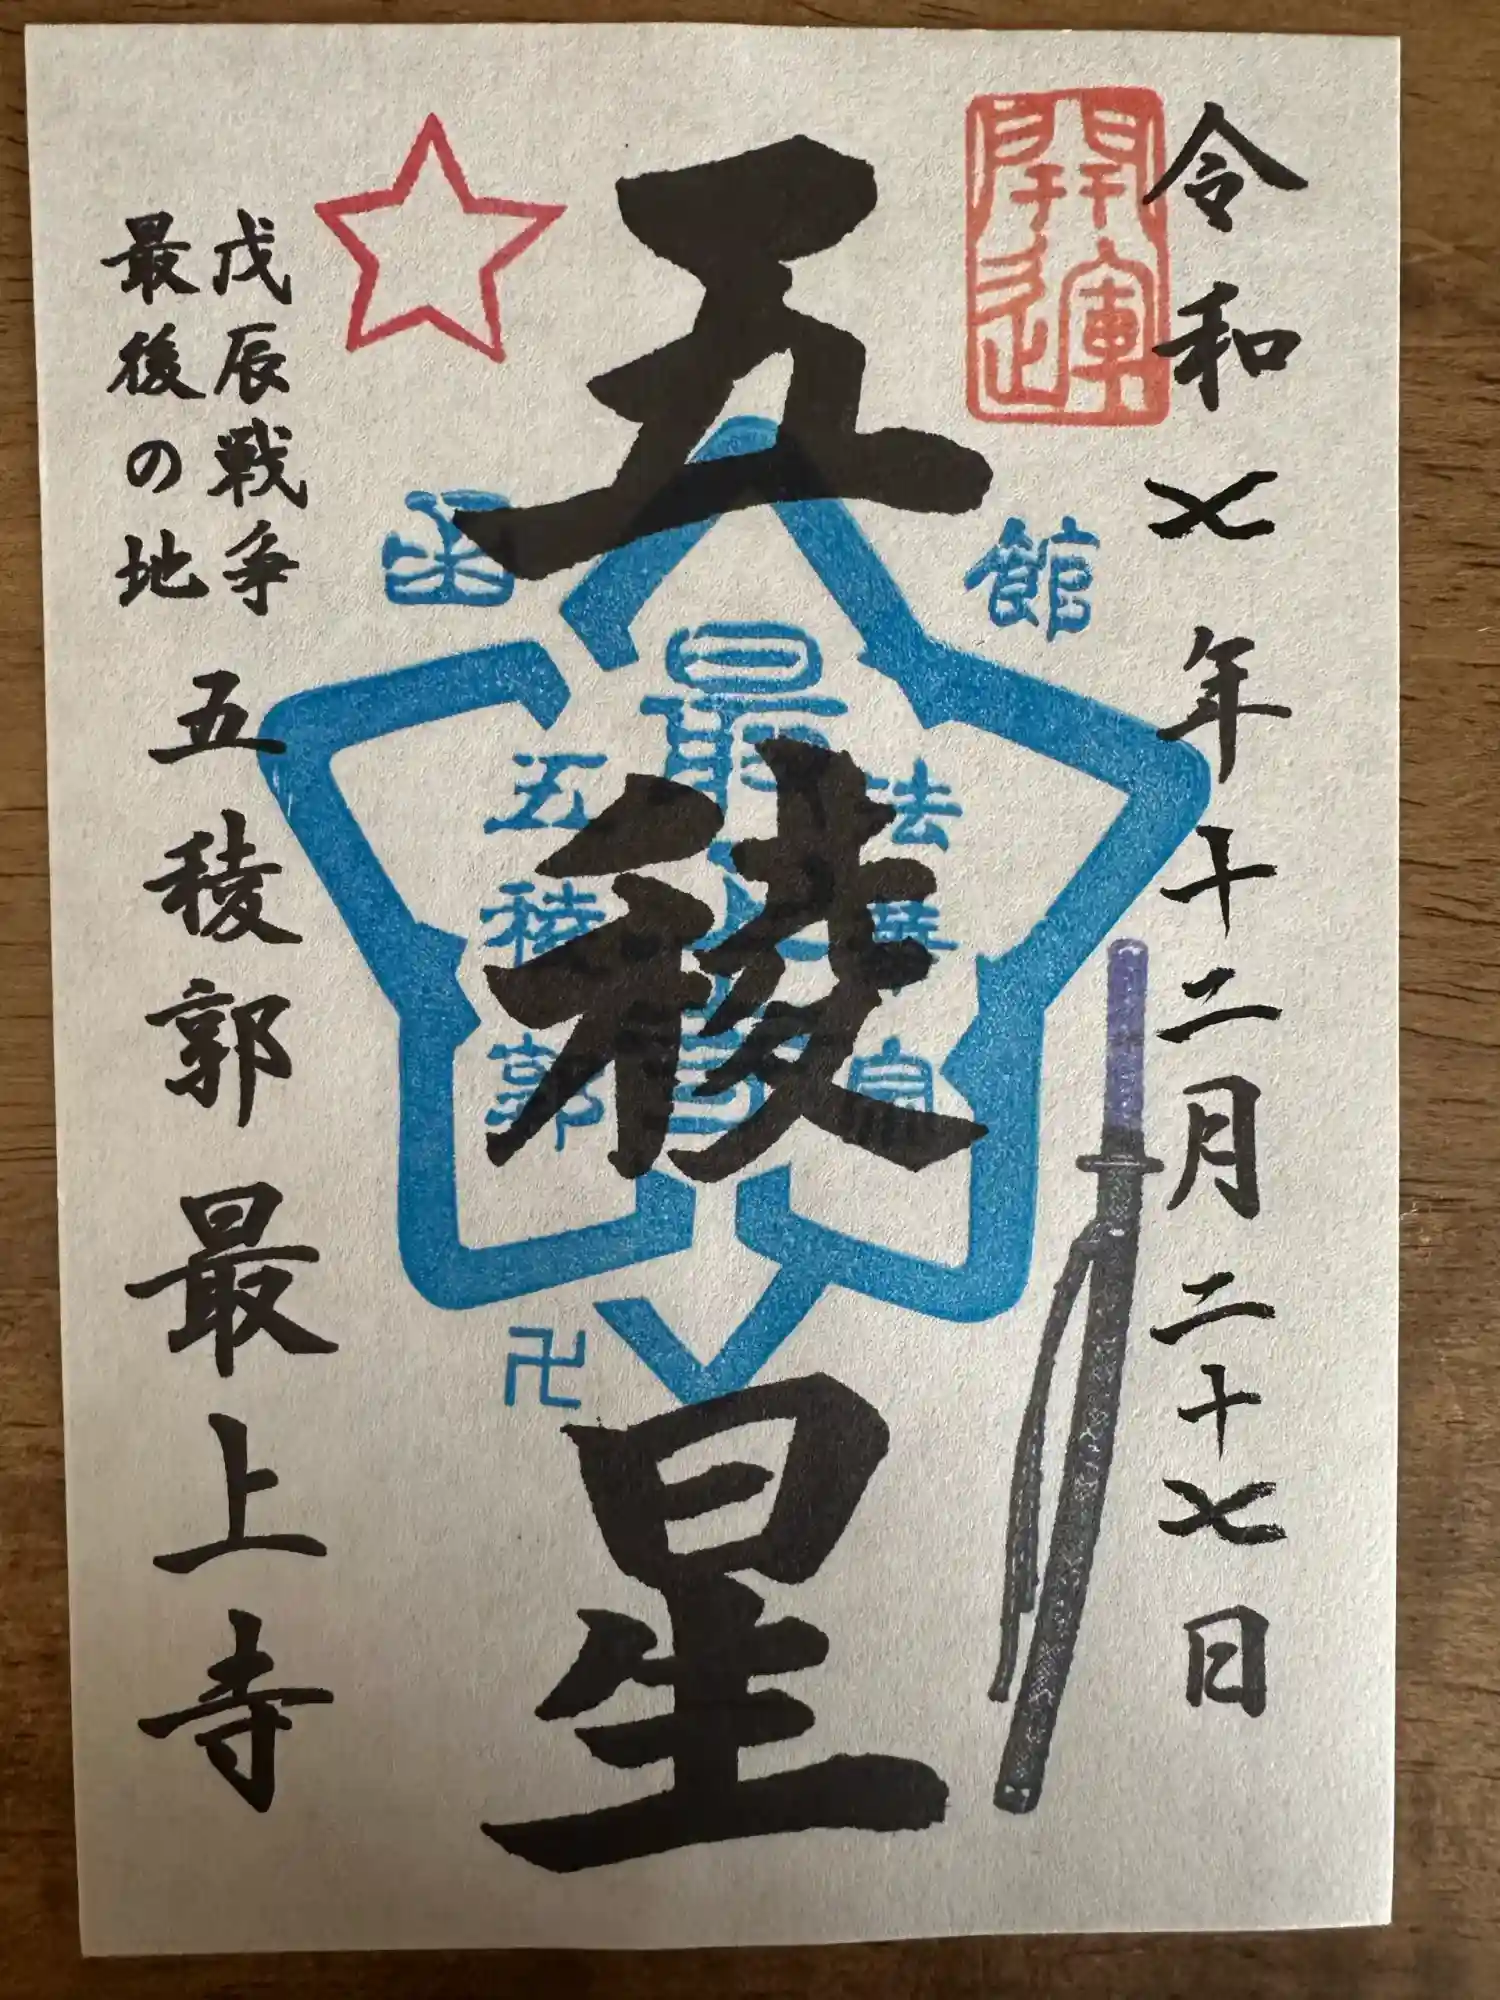 令和七年十二月二十七日
開運
五稜星
函館
法華宗
最上寺
五稜郭
卍
戊辰戦争
最後の地
五稜郭 最上寺